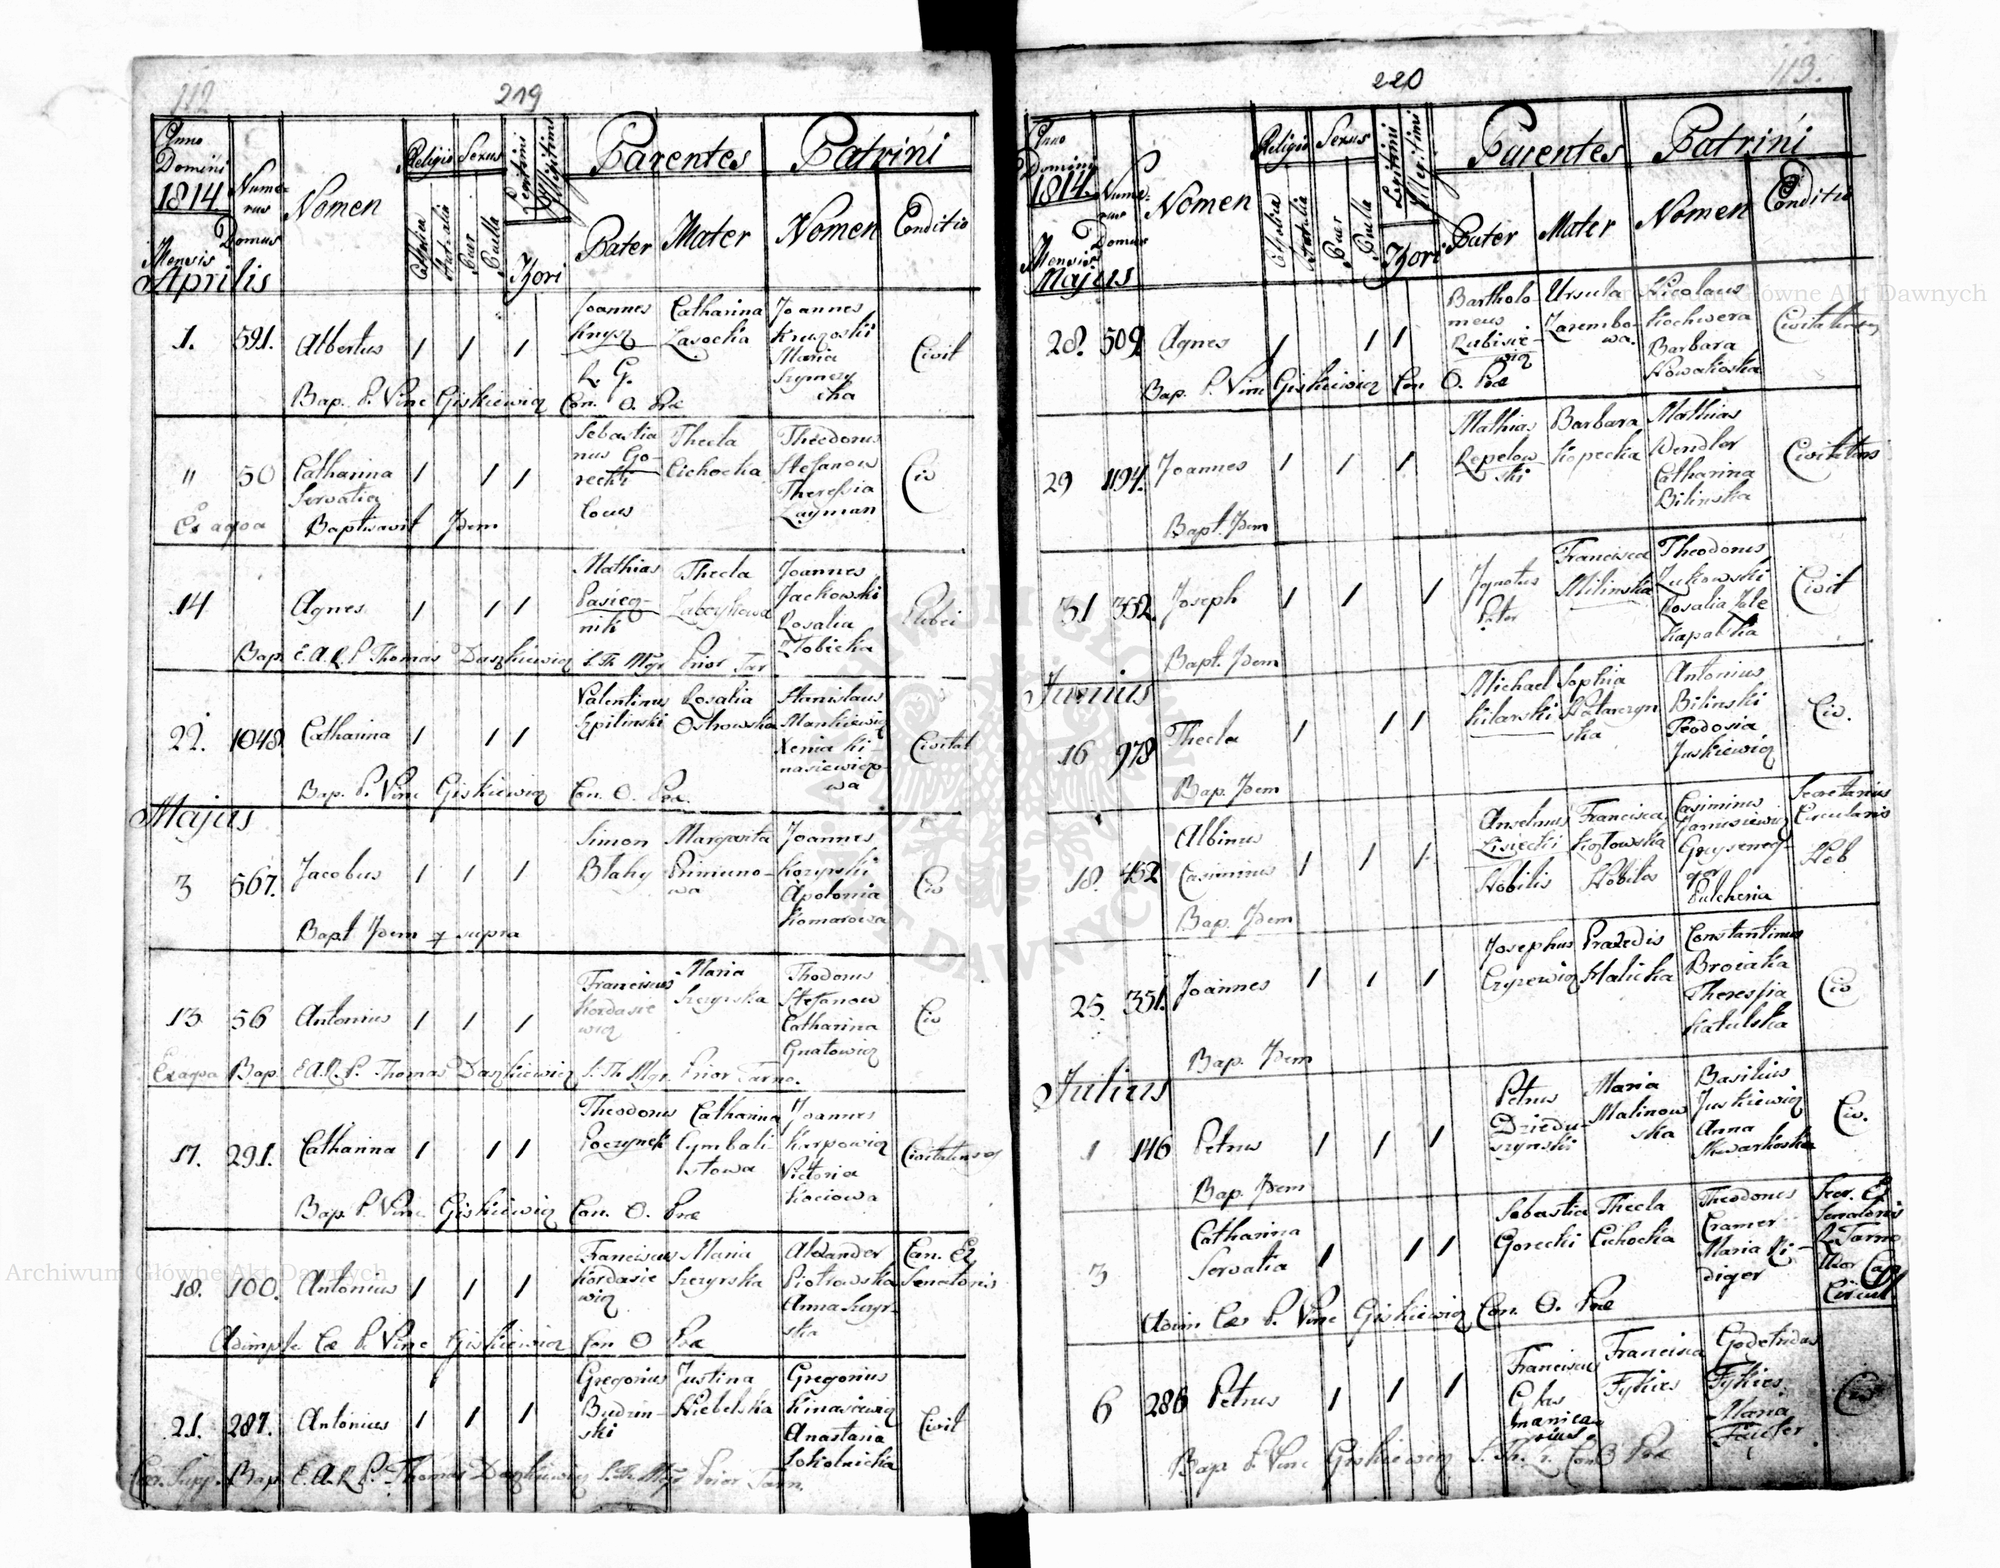 112
219
Anno Domini 1814 Mensis
Numerus Domus
Nomen
Religio Sexus
Catholica
Puer
Puella
Legitimi
Illegitimi
Thori
Parentes
Pater Mater
Patrini
Nomen Conditio
Aprilis
1. 591. Albertus 1 1 1
Joannes
Knysz
Catharina
Lasocka
Joannes
Maria
Civit
Bap. P. Vinc Giskiewicz Can. O. Præ
" 50 Catharina 1 1 1
Servatia
Sebastia
nus Go-
recki
Thecla
Cichocka
Theodorus
Stefanow
Theressia
Layman
Civ
Ex aqua Baptisavit Idem
14 Agnes 1 1 1
Mathias
Pasiecz-
nik
Thecla
Joannes
Jackowski
Rosalia
Zlobicka
Plebei
Bap. E.A.R.P. Thomas Daszkiewicz S. Th. Mgr Prior Tar
22. 1048 Catharina 1 1 1
Valentinus
Szpilinski
Rosalia
Ostrowska
Stanislaus
Mankiewicz
Xenia Ki-
nasiewiczo-
wa
Civitat
Bap. P. Vinc Giskiewicz Can. O. Præ.
Majus
3 567. Jacobus 1 1 1
Simon
Blahy
Margarita
Joannes
Apolonia
Komarowa
Civ
Bapt Idem q supra
13 56 Antonius 1 1 1
Franciscus
Kordasie
wicz
Maria
Szczyrska
Thodorus
Stefanow
Catharina
Gnatowicz
Civ
Ex aqua Bap. E.A.R.P. Thomas Daszkiewicz S. Th. Mgr. Prior Tarno.
17. 291. Catharina 1 1 1
Theodorus
Poczynek
Catharina
Cymbali-
stowa
Joannes
Karpowicz
Victoria
Kociowa
Bap. P. Vinc. Giskiewicz Can. O. Præ
18. 100. Antonius 1 1 1
Franciscus
Kordasie
wicz
Maria
Szczyrska
Alexander
Piotrowska
Anna Szczyr-
ska
Can. Et
Senatoris
P. Vinc Giskiewicz Can O Præ
21. 287. Antonius 1 1 1
Gregorius
Budzin-
ski
Justina
Niebelska
Gregorius
Kinasiewicz
Anastasia
Sokolnicka
Civit
Bap. E.A.R.P. Thomas Daszkiewicz S. Th. Mgr Prior Tarn.
220
113.
Anno Domini 1814 Mensis
Numerus Domus
Nomen
Religio Sexus
Puer
Puella
Legitimi
Illegitimi
Thori
Parentes
Pater Mater
Patrini
Nomen Conditio
Majus
28. 509 Agnes 1 1 1
Bartholo
meus
Rubisie-
wicz
Ursula
Zarembo-
wa.
Nicolaus
Kochwera
Barbara
Nowakoska
Bap. P. Vinc Giskiewicz Can O. Præ
29 1194. Joannes 1 1 1
Mathias
Repelow
ski
Barbara
Kopecka
Mathias
Wendler
Catharina
Bilinska
Bapt. Idem
31 352. Joseph 1 1 1
Ignotus
Pater
Francisca
Milinska
Theodorus
Zukowski
Rosalia
Civit
Bapt. Idem
Junius
16 978 Thecla 1 1 1
Michael
Kilarski
Sophia
Antonius
Bilinski
Teodosia
Juskiewicz
Civ.
Bap. Idem
18. 452 Albinus
Casimirus 1 1 1
Anselmus
Lisiecki
Nobilis
Francisca
Kozlowska
Nobilis
Casimirus
Janusiewicz
Pulcheria
Secretarius
Circularis
Nob
Bap. Idem
25. 351. Joannes 1 1 1
Josephus
Czyzewicz
Praxedis
Halicka
Constantinus
Broiaka
Theressia
Katulska
Civ
Bap. Idem
Julius
1 146 Petrus 1 1 1
Petrus
Dziedu-
szynski
Maria
Malinow
ska
Basilius
Juskiewicz
Anna
Skwarkoska
Civ.
Bap. Idem
3 Catharina
Servatia 1 1 1
Sebastia
Gorecki
Thecla
Cichocka
Theodorus
Cramer
Maria Ri-
diger
Secr. Et
Senatoris
Giskiewicz Can. O. Præ
6 286 Petrus 1 1 1
Franciscus
Francisca
Fykies
Godefridus
Fykies
Maria
Civ
Bap P. Vinc Giskiewicz S. Th. L. Can O Præ
Archiwum Główne Akt Dawnych
Archiwum Główne Akt Dawnych
ARCHIWUM GŁÓWNE AKT DAWNYCH